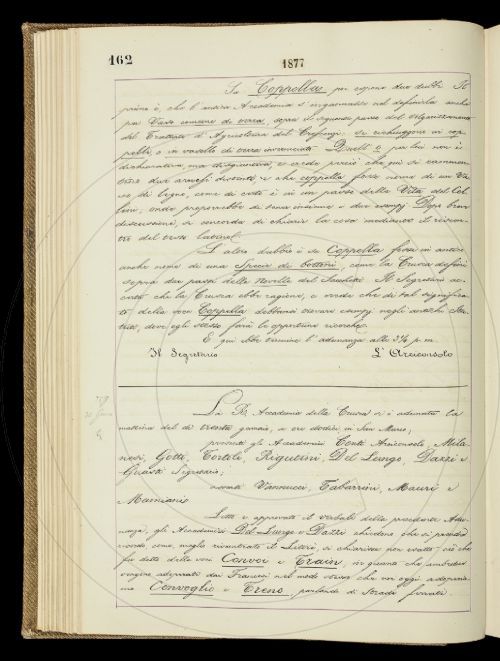 162
1877
Su Coppella per cagione due dubbi. Il
primo è, che l'antica Accademia s'ingannasse nel definirla anche
per Vaso comune di terra, sopra il seguente passo del Volgarizzamento
del Trattato d'Agricoltura del Crescenzi: si richiuggono in cop-
pelle, o in vaselli di terra invetriata. Quell'o per lui non è
dichiarativa, ma disgiuntiva; e crede perciò che qui si rammen-
tino due arnesi distinti, e che coppella forse nome di un Va-
so di legno, come di certo è in un passo della Vita del Cel-
lini; onde proporrebbe di fare insieme i due esempj. Dopo breve
discussione, si concorda di chiarir la cosa mediante il riscon-
tro del testo latino.
L'altro dubbio è se Coppella fosse in antico
anche nome di una Specie di bottoni, come la Crusca definì
sopra due passi delle Novelle del Sacchetti. Il Segretario ac-
certa che la Crusca ebbe ragione, e crede che di tal significa-
to della voce Coppella debbansi trovare esempj negli antichi Sta-
tuti, dove egli stesso farà le opportune ricerche.
E qui ebbe termine l'adunanza alle 3¼ p. m.
Il Segretario L'Arciconsolo
La R. Accademia della Crusca si è adunata la
mattina del dì trenta gennaio, a ore dodici, in San Marco;
presenti gli Accademici Conti Arciconsolo, Mila-
nesi, Gotti, Tortoli, Rigutini, Del Lungo, Dazzi e
Guasti Segretario;
assenti Vannucci, Tabarrini, Mauri e
Mamiani.
Letto e approvato il verbale della precedente Adu-
nanza, gli Accademici Del Lungo e Dazzi chiedono che si prenda
ricordo, come meglio riscontrato il Littré, si chiarisse non esatto ciò che
fu detto delle voci Convoi e Train, in quanto che ambedue
vengono adoprati dai Francesi nel modo stesso che noi oggi adopria-
mo Convoglio e Treno, parlando di Strada ferrata.